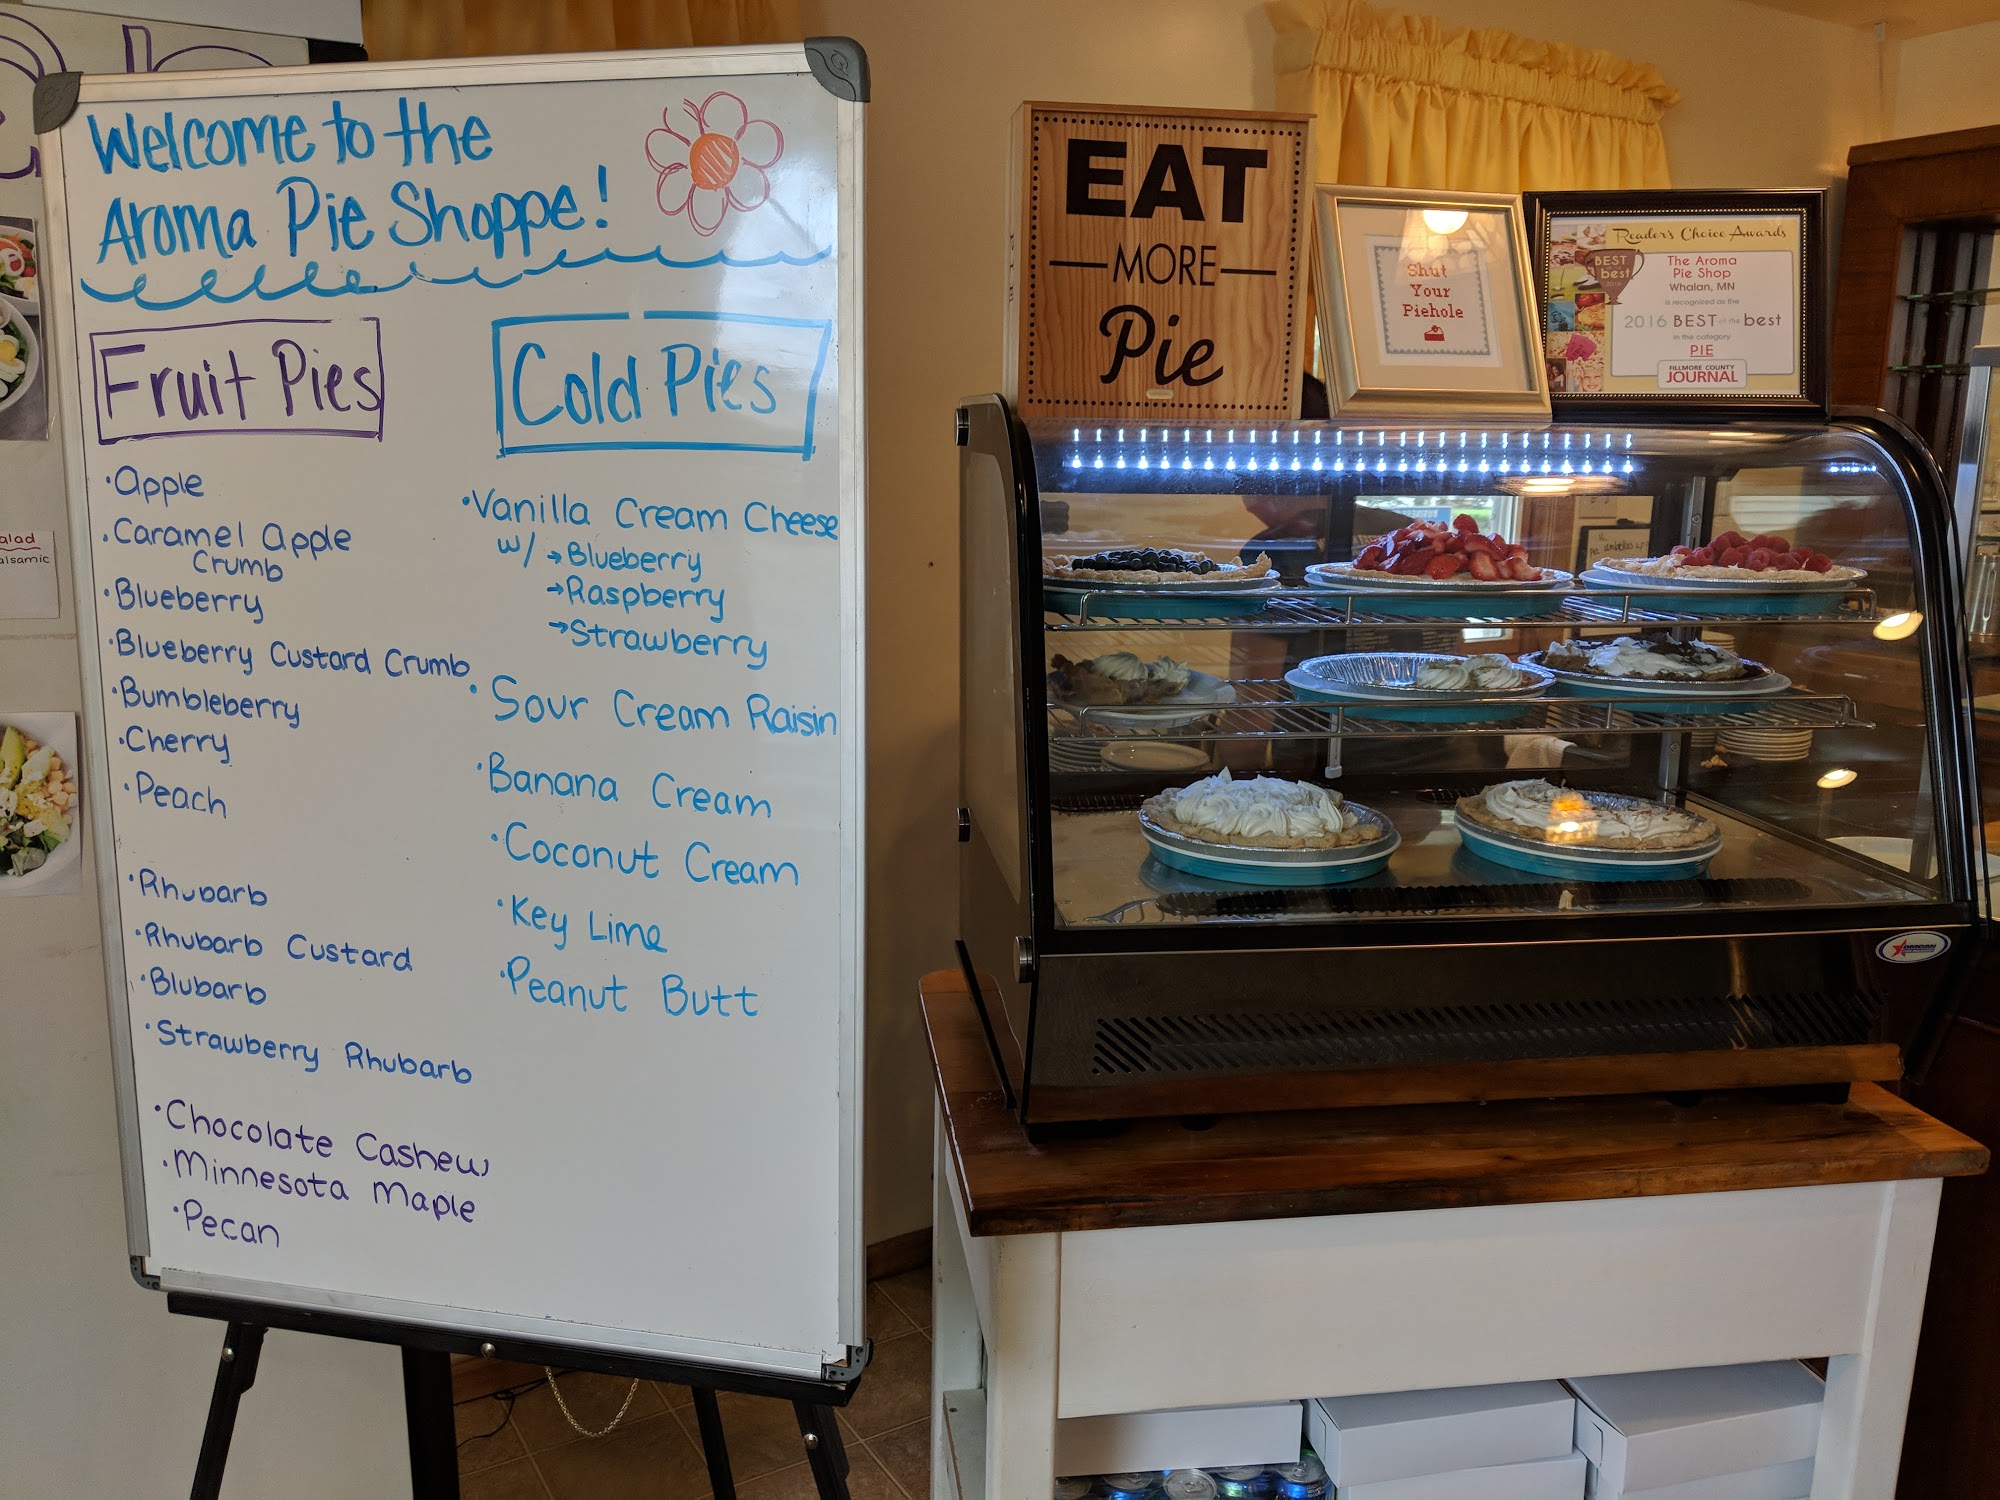 Welcome to the
Aroma Pie Shoppe!
Fruit Pies
• Apple
• Caramel Apple
Crumb
• Blueberry
• Blueberry Custard Crumb
• Bumbleberry
• Cherry
• Peach
• Rhubarb
• Rhubarb Custard
• Blubarb
• Strawberry Rhubarb
• Chocolate Cashew
• Minnesota Maple
• Pecan
Cold Pies
• Vanilla Cream Cheese
w/ → Blueberry
→ Raspberry
→ Strawberry
• Sour Cream Raisin
• Banana Cream
• Coconut Cream
• Key Lime
• Peanut Butt
EAT
MORE
Pie
Shut
Your
Piehole
Reader's Choice Awards
BEST
of the best
2016
The Aroma
Pie Shop
Whalan, MN
is recognized as the
2016 BEST of the best
in the category
PIE
FILLMORE COUNTY
JOURNAL
OMCAN
alad
alsamic